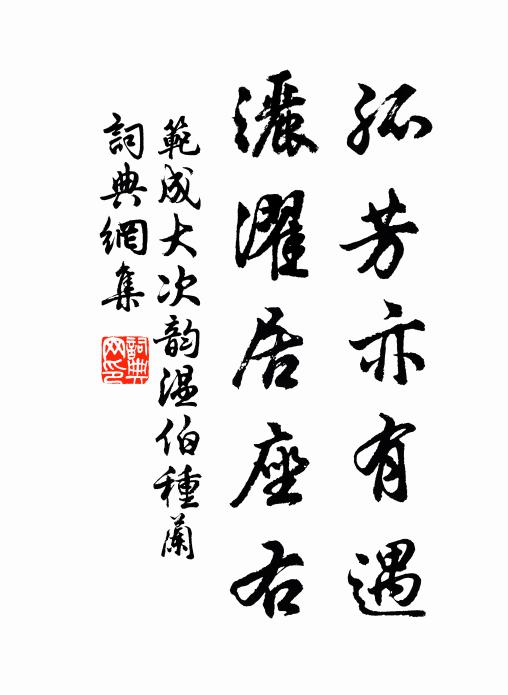 孤芳亦有遇
灑濯居座右
範成大次韵溫伯種蘭
詞典網集
詞典網印